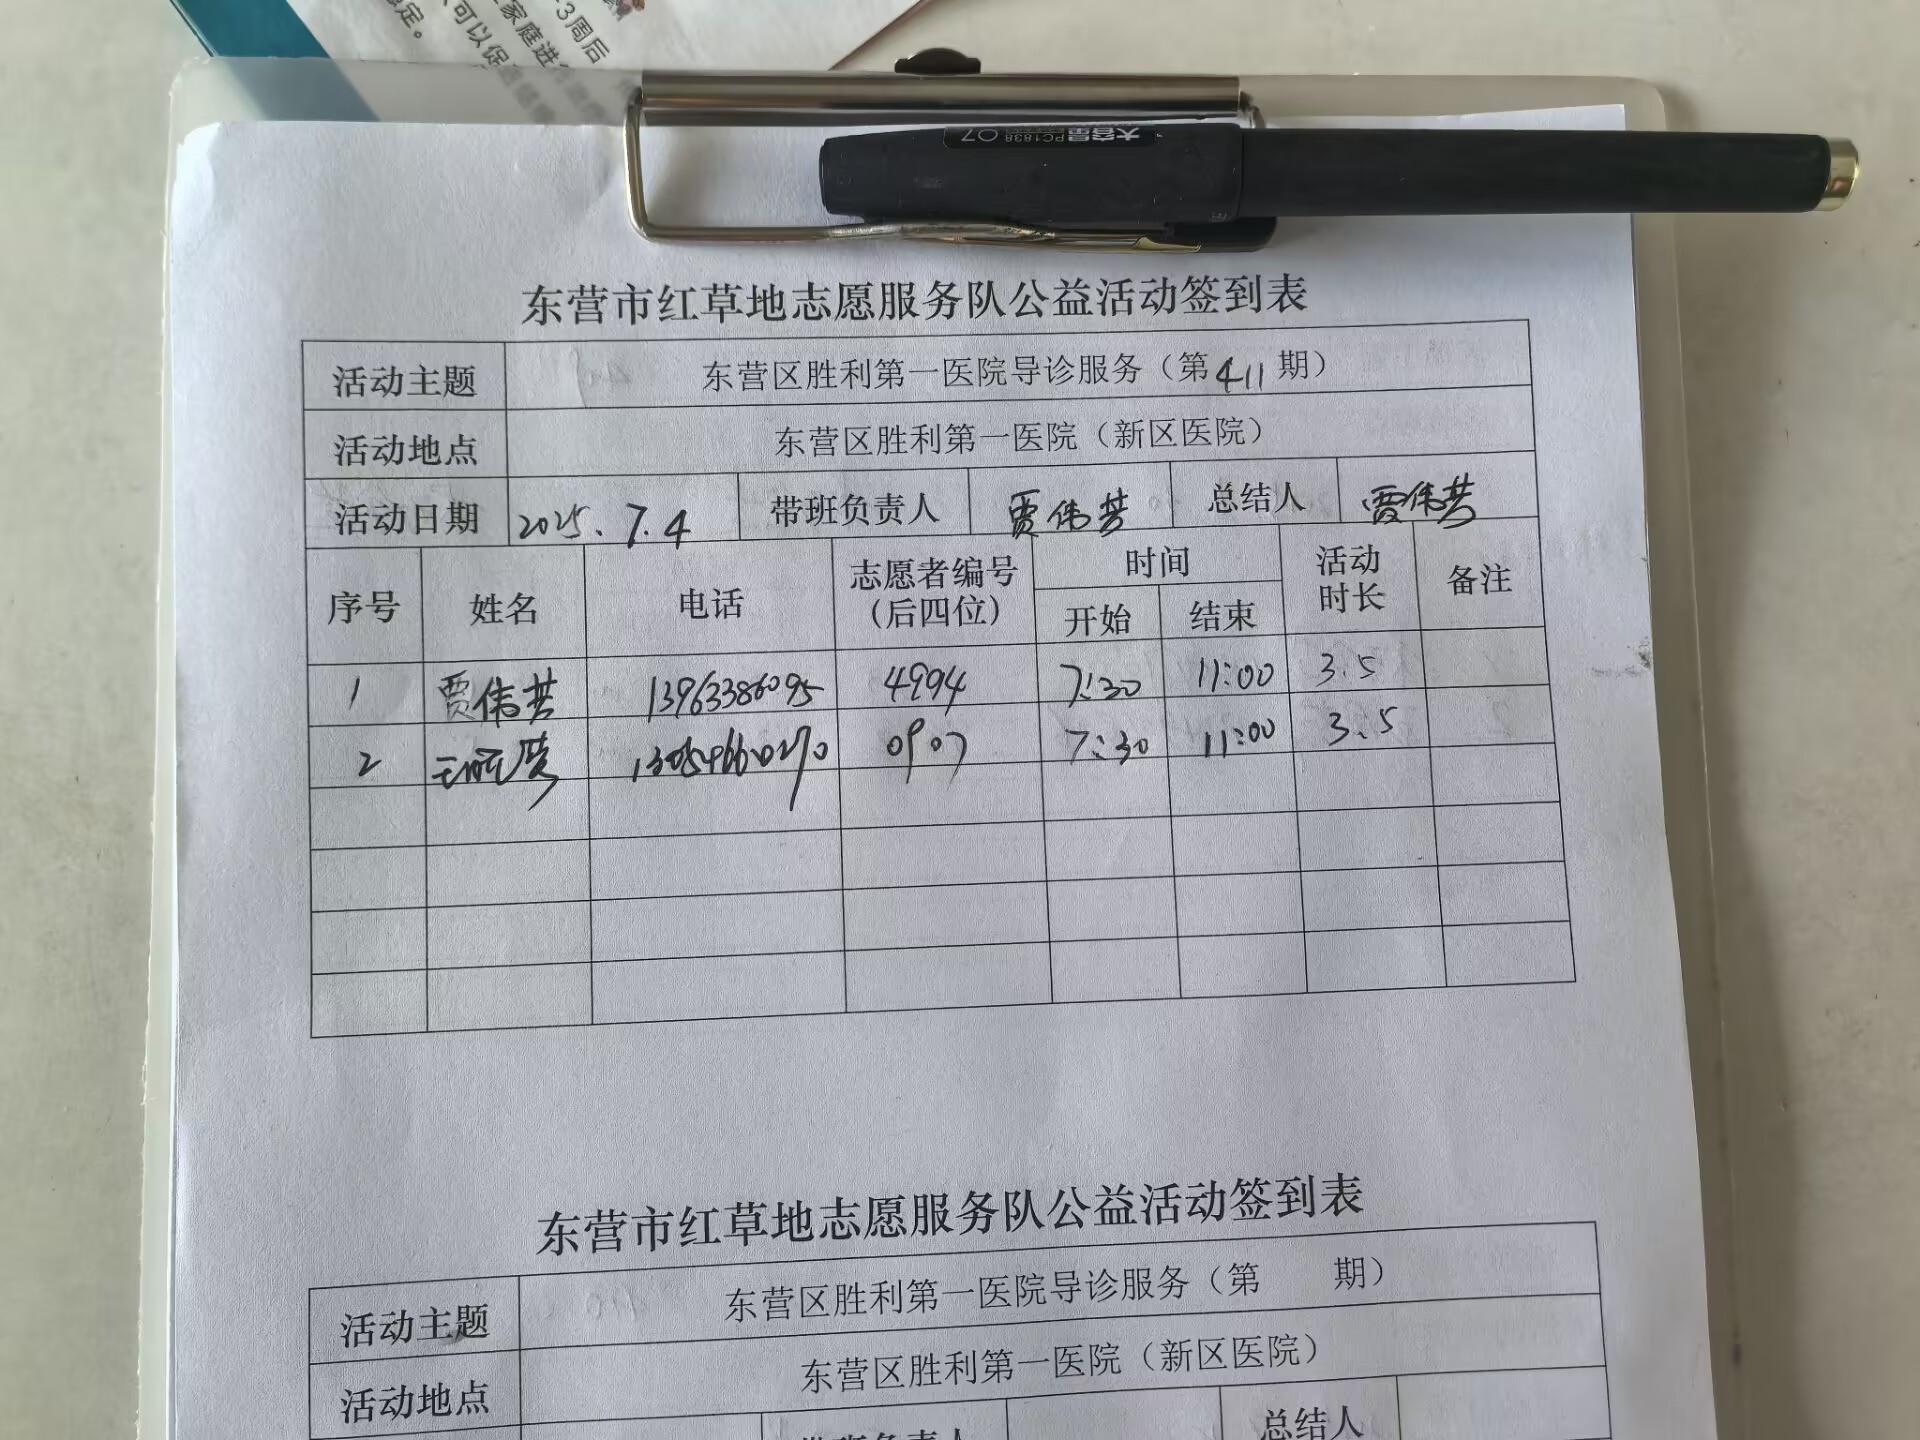 3周后
家庭进行
可以促
稳定。
大容量 PC1838 0.7
东营市红草地志愿服务队公益活动签到表
活动主题 东营区胜利第一医院导诊服务（第411期）
活动地点 东营区胜利第一医院（新区医院）
活动日期 2025.7.4 带班负责人 贾伟芳 总结人 贾伟芳
序号 姓名 电话 志愿者编号（后四位） 时间 开始 结束 活动时长 备注
1 贾伟芳 13963386095 4994 7:30 11:00 3.5
2 0907 7:30 11:00 3.5
东营市红草地志愿服务队公益活动签到表
活动主题 东营区胜利第一医院导诊服务（第 期）
活动地点 东营区胜利第一医院（新区医院）
带班负责人 总结人